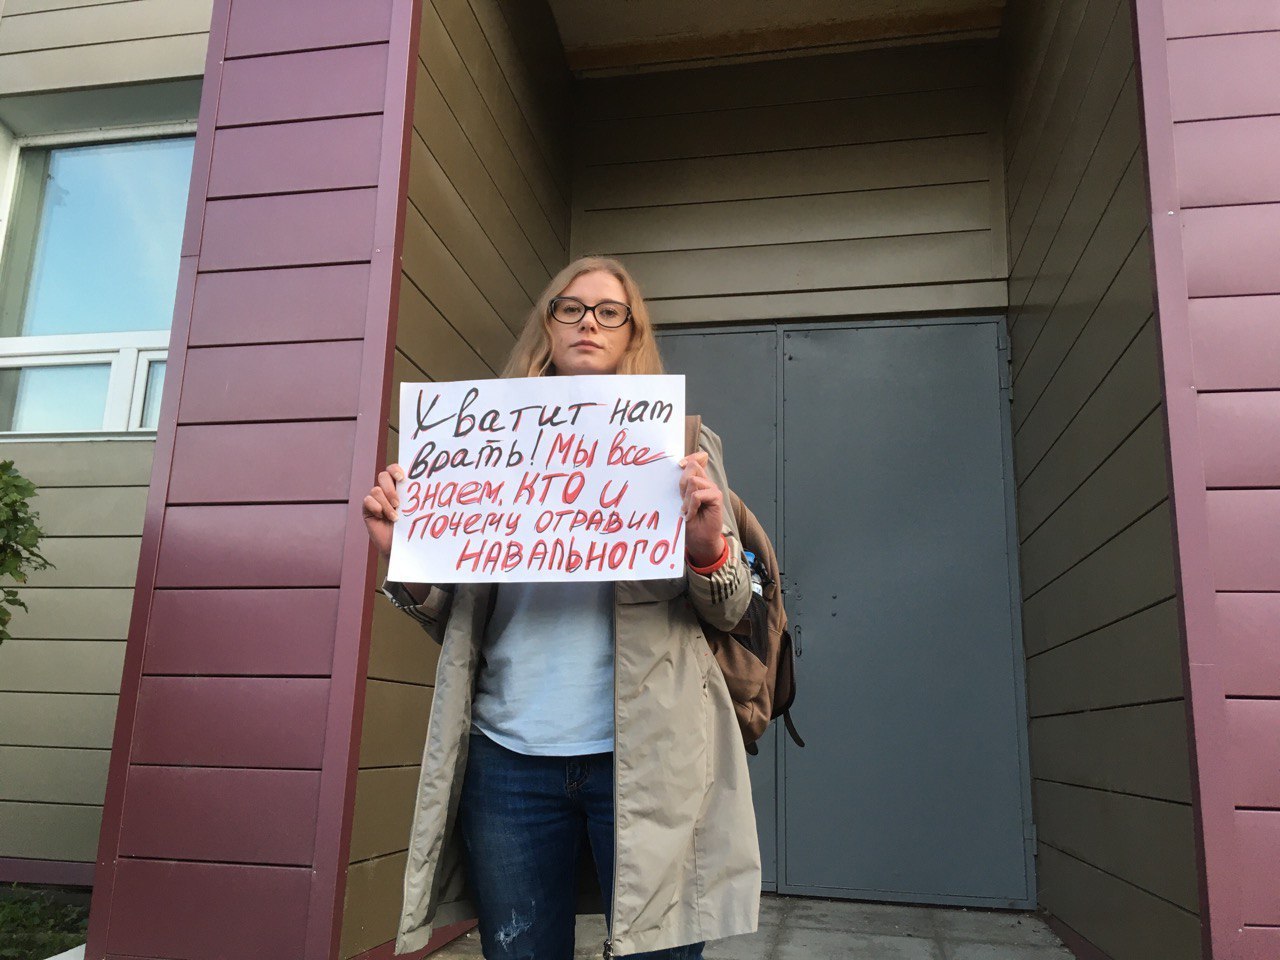 Хватит нам
врать! Мы все
знаем, кто и
почему отравил
НАВАЛЬНОГО!